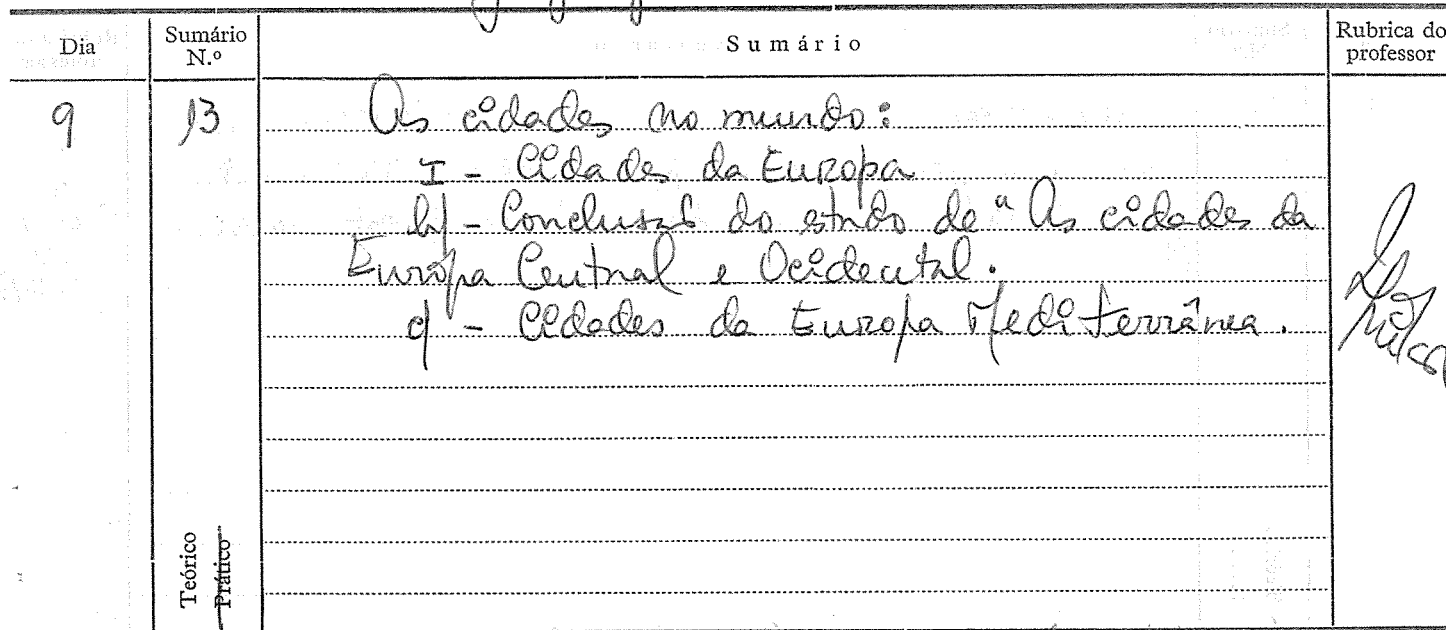 Dia Sumário N.º Sumário Rubrica do professor
9 13 As cidades no mundo:
I - Cidades da Europa
b) - Conclusão do estudo de "As cidades da
Europa Central e Ocidental.
c) - Cidades da Europa Mediterrânea.
Teórico
Prático